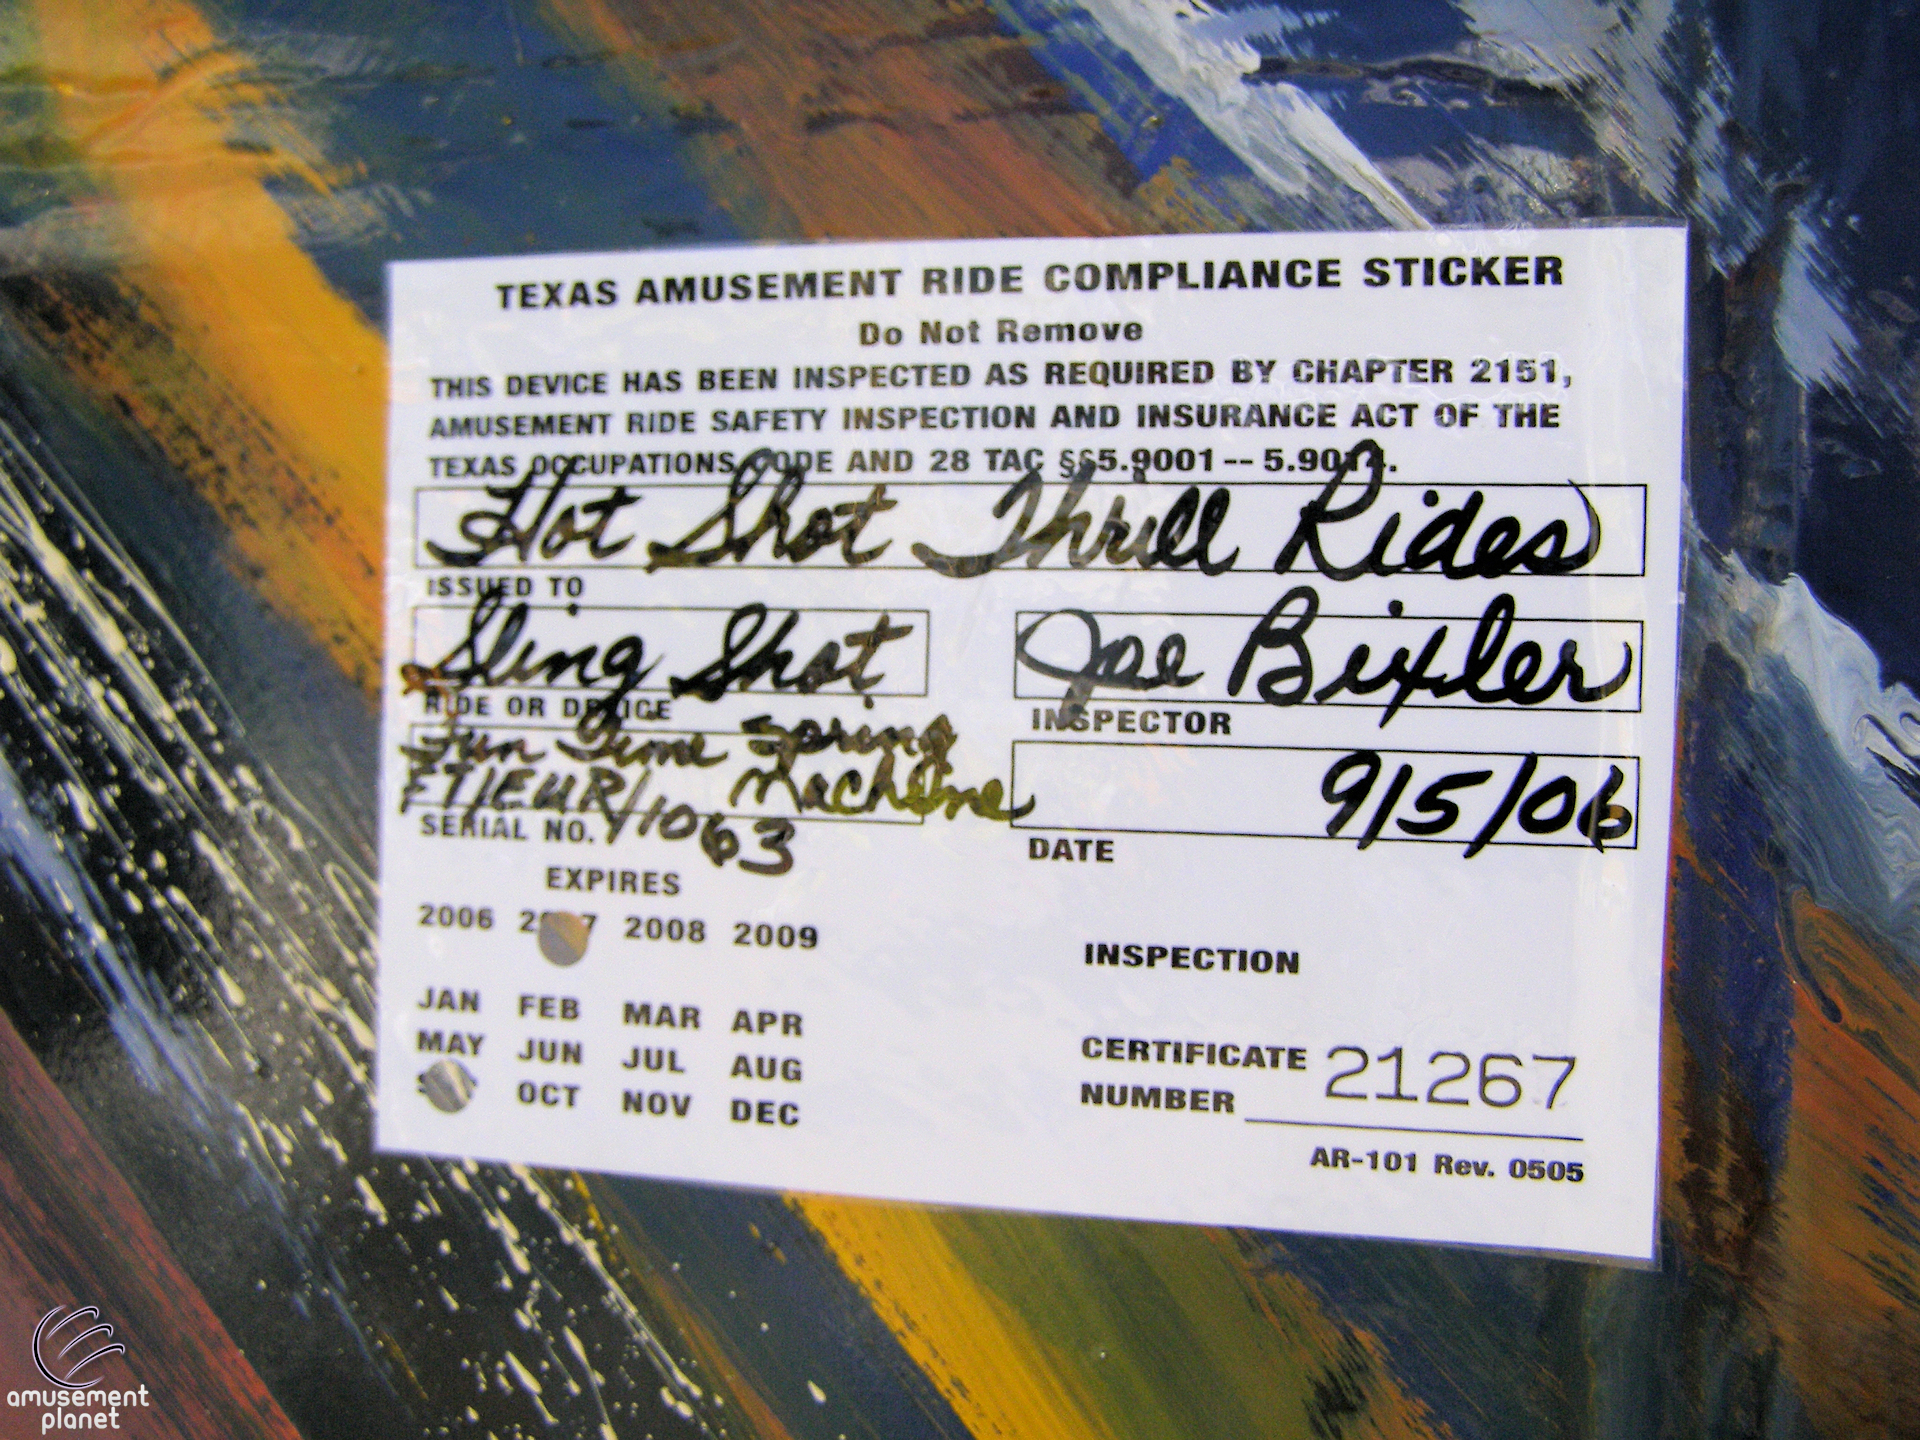 TEXAS AMUSEMENT RIDE COMPLIANCE STICKER
Do Not Remove
THIS DEVICE HAS BEEN INSPECTED AS REQUIRED BY CHAPTER 2151,
AMUSEMENT RIDE SAFETY INSPECTION AND INSURANCE ACT OF THE
TEXAS OCCUPATIONS CODE AND 28 TAC §§5.9001 -- 5.9014.
Hot Shot Thrill Rides
ISSUED TO
Sling Shot
RIDE OR DEVICE
Joe Bixler
INSPECTOR
Fun Time Spring Machine
FT/EUR/11063
SERIAL NO.
9/5/06
DATE
EXPIRES
2006 2007 2008 2009
JAN FEB MAR APR
MAY JUN JUL AUG
OCT NOV DEC
INSPECTION
CERTIFICATE
NUMBER 21267
AR-101 Rev. 0505
amusement
planet